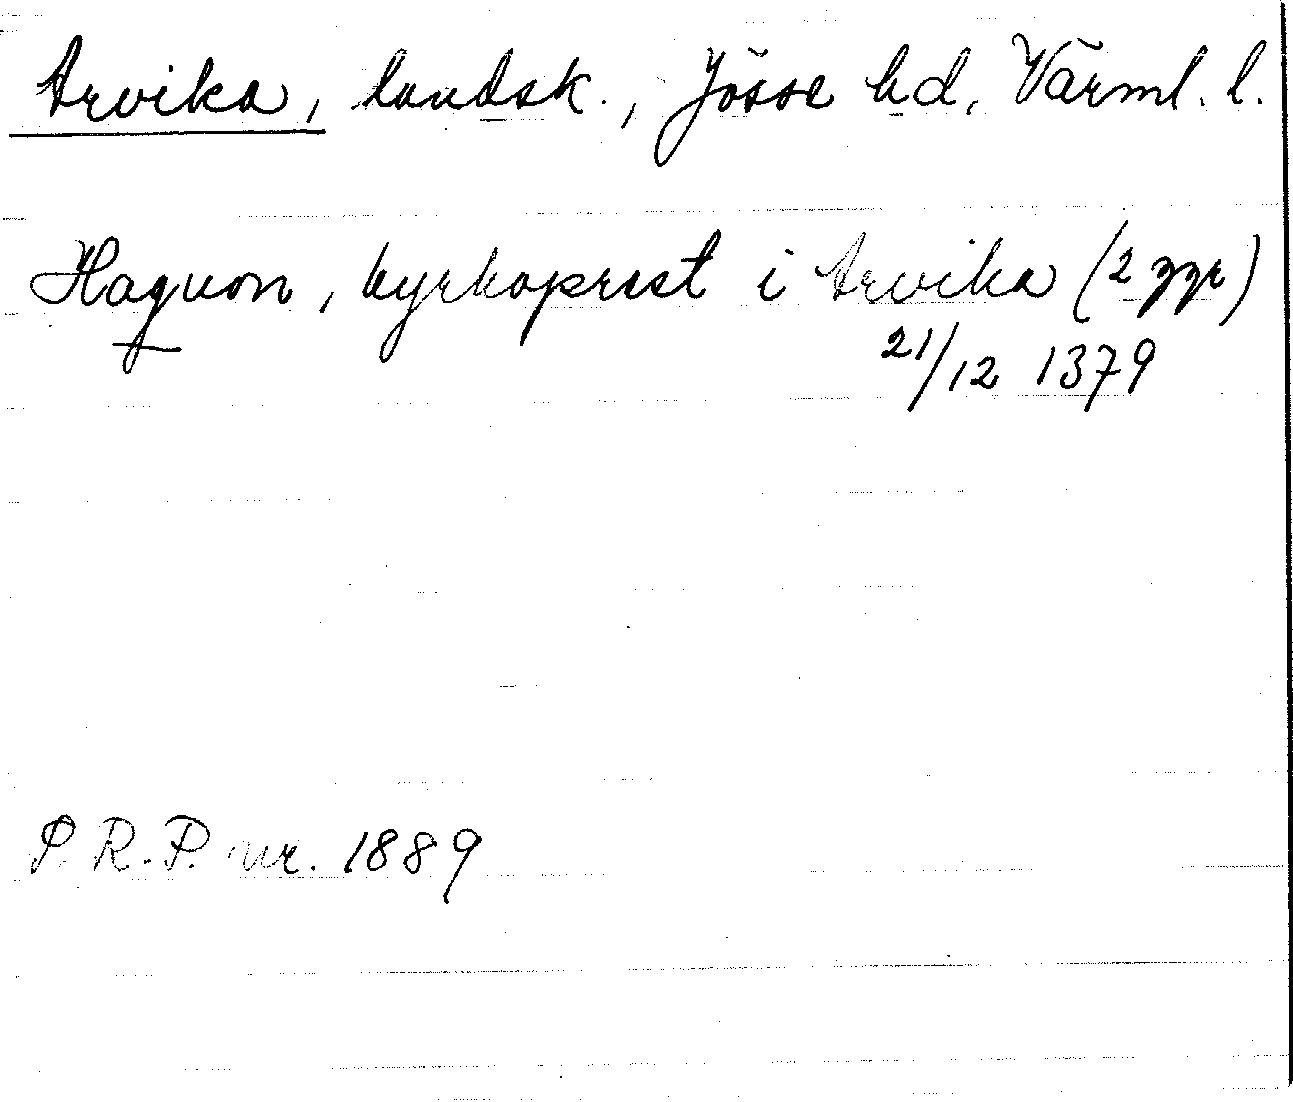 Arvika, landsk., Jösse hd, Värml. l.
Haquon, kyrkoprest i Arvika (2 ggr)
21/12 1379
P. R. P. nr. 1889